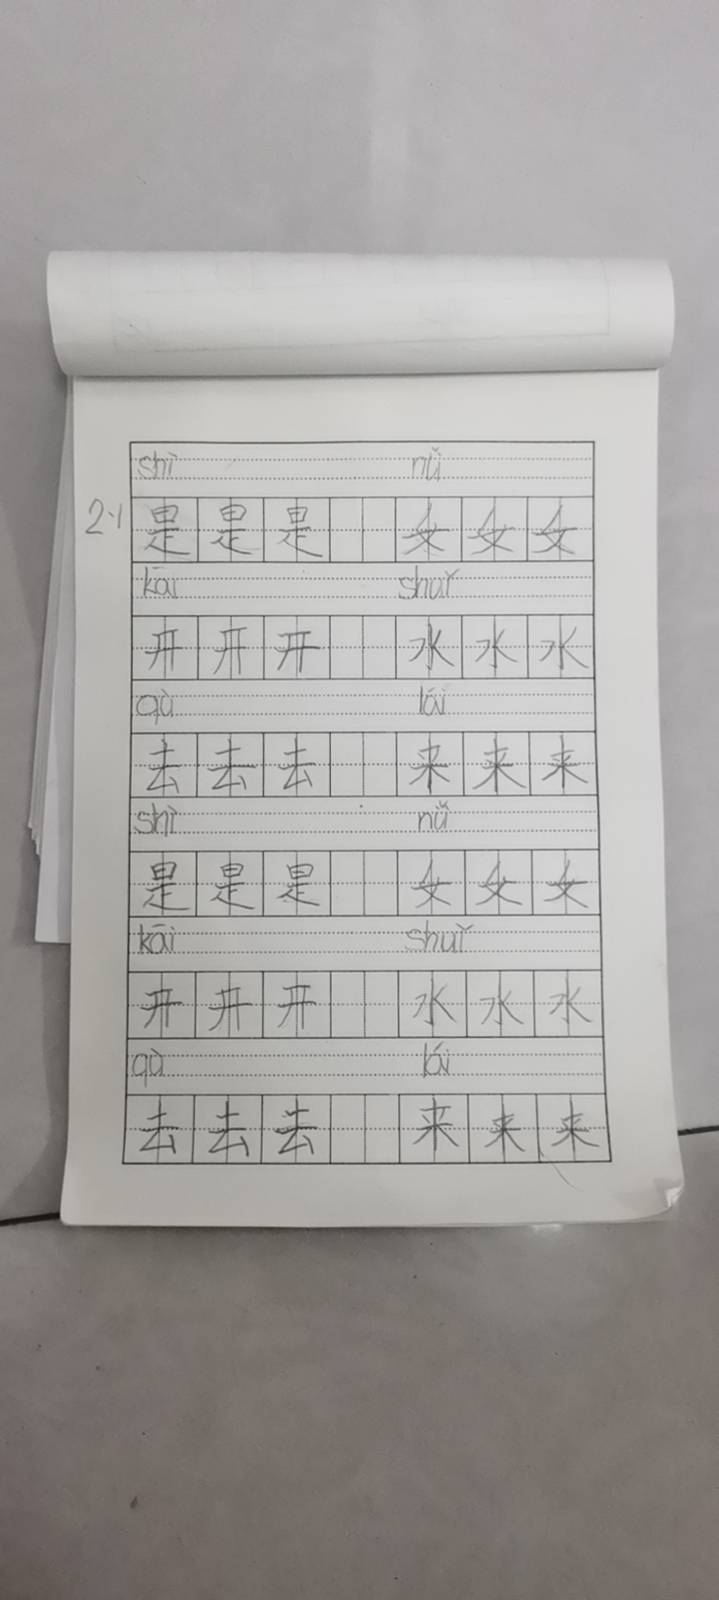 shì nǚ
2-1 是 是 是 女 女 女
kāi shuǐ
开 开 开 水 水 水
qù lái
去 去 去 来 来 来
shì nǚ
是 是 是 女 女 女
kāi shuǐ
开 开 开 水 水 水
qù lái
去 去 去 来 来 来